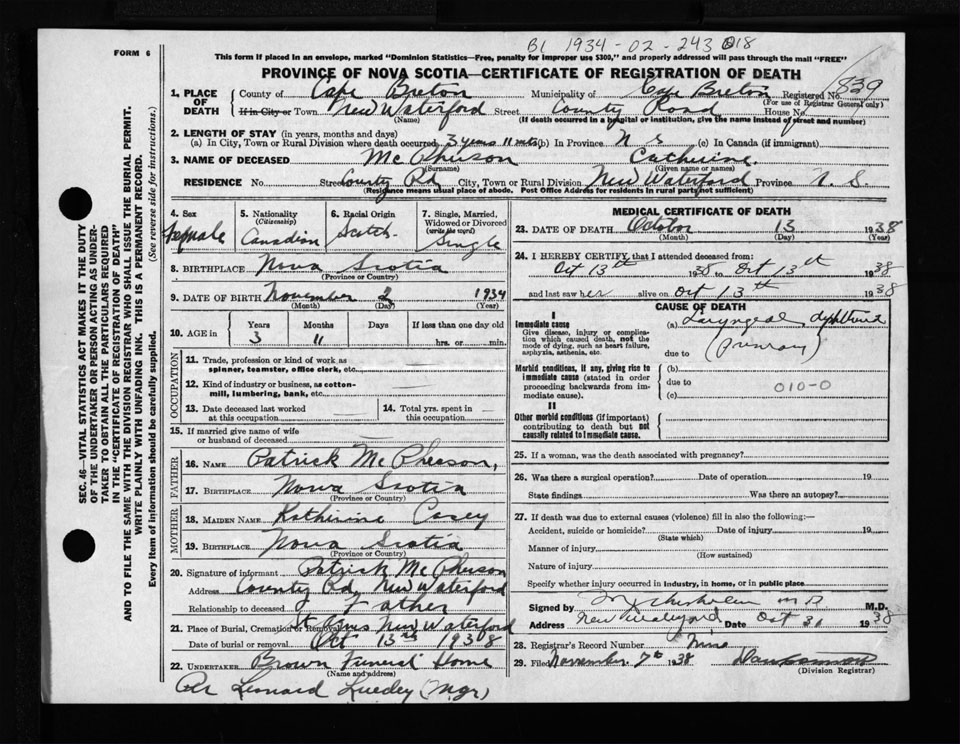 BC 1934-02-243018
FORM 6
This form if placed in an envelope, marked "Dominion Statistics—Free, penalty for improper use $300," and properly addressed will pass through the mail "FREE"
PROVINCE OF NOVA SCOTIA—CERTIFICATE OF REGISTRATION OF DEATH
1. PLACE OF DEATH County of Cape Breton Municipality of Cape Breton Registered No. 839
(For use of Registrar General only)
If in City or Town New Waterford Street County Road House No.
(Name) (If death occurred in a hospital or institution, give the name instead of street and number)
2. LENGTH OF STAY (in years, months and days)
(a) In City, Town or Rural Division where death occurred 3 years 11 mts (b) In Province N S (c) In Canada (if immigrant)
3. NAME OF DECEASED McPherson Catherine
(Surname) (Given name or names)
RESIDENCE No. Street County Rd City, Town or Rural Division New Waterford Province N. S.
(Residence means usual place of abode. Post Office Address for residents in rural parts not sufficient)
4. Sex Female
5. Nationality (Citizenship) Canadian
6. Racial Origin Scotch
7. Single, Married, Widowed or Divorced (write the word) Single
8. BIRTHPLACE Nova Scotia
(Province or Country)
9. DATE OF BIRTH November 2 1934
(Month) (Day) (Year)
10. AGE in Years Months Days If less than one day old
3 11 hrs. or min.
OCCUPATION
11. Trade, profession or kind of work as spinner, teamster, office clerk, etc.
12. Kind of industry or business, as cotton-mill, lumbering, bank, etc.
13. Date deceased last worked at this occupation
14. Total yrs. spent in this occupation
15. If married give name of wife or husband of deceased
FATHER
16. NAME Patrick McPherson,
17. BIRTHPLACE Nova Scotia
(Province or Country)
MOTHER
18. MAIDEN NAME Katherine Casey
19. BIRTHPLACE Nova Scotia
(Province or Country)
20. Signature of informant Patrick McPherson
Address County Rd, New Waterford
Relationship to deceased Father
21. Place of Burial, Cremation or Removal New Waterford
Date of burial or removal Oct 13th 1938
22. UNDERTAKER Brown Funeral Home
(Name and address)
Per Leonard (Mgr)
MEDICAL CERTIFICATE OF DEATH
23. DATE OF DEATH October 13 1938
(Month) (Day) (Year)
24. I HEREBY CERTIFY that I attended deceased from:
Oct 13th 1938 to Oct 13th 1938
and last saw her alive on Oct 13th 1938
CAUSE OF DEATH
I
Immediate cause
Give disease, injury or complication which caused death, not the mode of dying, such as heart failure, asphyxia, asthenia, etc.
(a) Laryngeal diphtheria
due to (primary)
Morbid conditions, if any, giving rise to immediate cause (stated in order proceeding backwards from immediate cause).
(b)
due to 010-0
(c)
II
Other morbid conditions (if important) contributing to death but not causally related to immediate cause.
25. If a woman, was the death associated with pregnancy?
26. Was there a surgical operation? Date of operation 19
State findings Was there an autopsy?
27. If death was due to external causes (violence) fill in also the following:—
Accident, suicide or homicide? Date of injury 19
(State which)
Manner of injury
(How sustained)
Nature of injury
Specify whether injury occurred in industry, in home, or in public place
Signed by M.D. M.D.
Address New Waterford Date Oct 31 1938
28. Registrar's Record Number Nine
29. Filed November 7th 1938
(Division Registrar)
SEC. 46—VITAL STATISTICS ACT MAKES IT THE DUTY
OF THE UNDERTAKER OR PERSON ACTING AS UNDER-
TAKER TO OBTAIN ALL THE PARTICULARS REQUIRED
IN THE "CERTIFICATE OF REGISTRATION OF DEATH"
AND TO FILE THE SAME WITH THE DIVISION REGISTRAR WHO SHALL ISSUE THE BURIAL PERMIT.
WRITE PLAINLY WITH UNFADING INK. THIS IS A PERMANENT RECORD.
Every item of information should be carefully supplied. (See reverse side for instructions.)